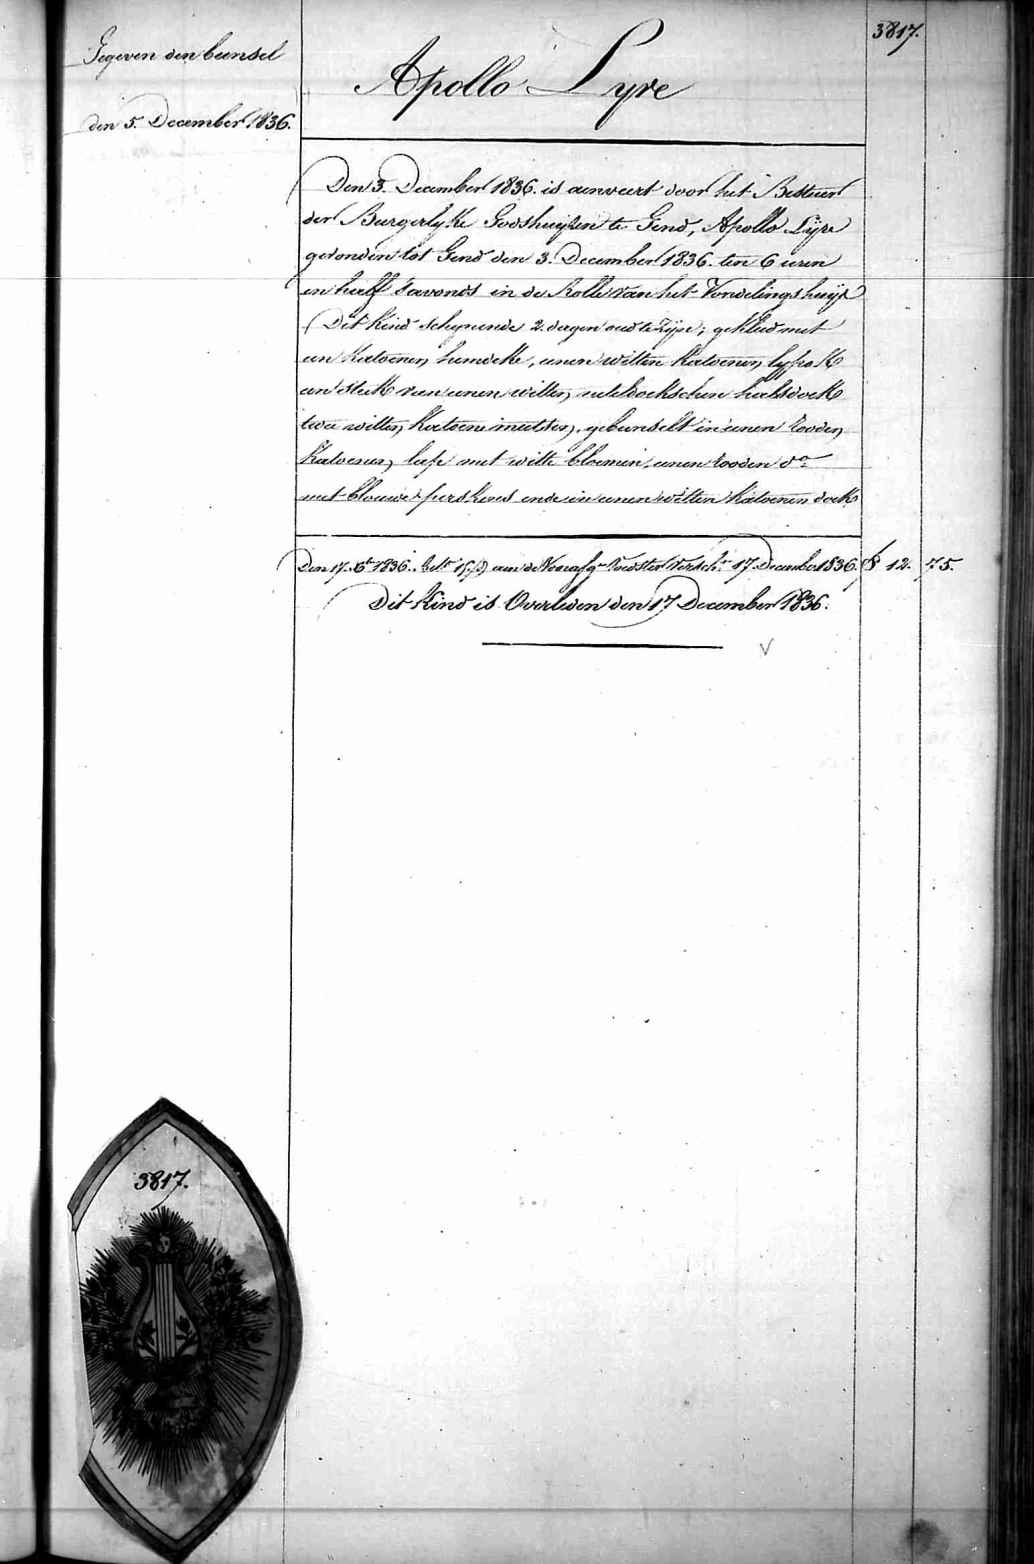 3817.
Gegeven den bunsel
den 5. December 1836.
Apollo Lyre
Den 3. December 1836. is aenveert door het Bestuer
der Burgerlyke Godshuysen te Gend, Apollo Lyre
gevonden tot Gend den 3. December 1836. ten 6 uren
en half s'avonds in de Rolle van het Vondelingshuys
Dit kind schynende 2. dagen oud te zyn; gekleed met
een katoenen hemdeke, eenen witten katoenen lyfrok
een stuk van eenen witten neteldoekschen halsdoek
twee witten katoene mutsen, gebunselt in eenen rooden
katoenen lap met witte bloemen, eenen rooden do
met blauwe perskens ende in eenen witten katoenen doek
Den 17. Xbr 1836. 15 aen de Voedster 17. December 1836. 12. 75.
Dit kind is Overleden den 17 December 1836.
3817.